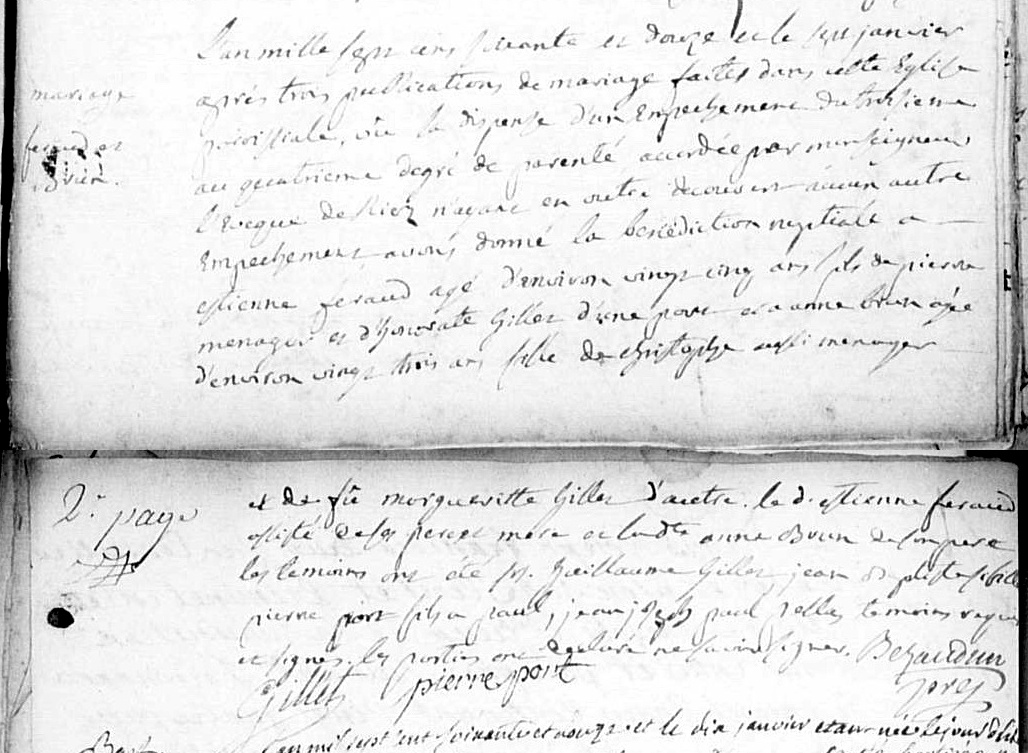 L'an mille sept cens soixante et douze et le sept janvier
mariage
après trois publications de mariage faites dans cette Eglise
paroissiale, vûe la dispense d'un Empechement du troisieme
feraud et
Brun.
au quatrieme degré de parenté accordée par monseigneur
l'Eveque de Riez n'ayant en outre decouvert aucun autre
Empechement avons donné la benediction nuptiale a
estienne feraud agé d'environ vingt cinq ans fils de pierre
menager et d'honorate Gillet d'une part et a anne brun agée
d'environ vingt trois ans fille de christophe aussi menager
2e page
et de fûe margueritte Gillet d'autre. le d. estienne feraud
assisté de ses pere et mere et ladte anne Brun de son pere
les temoins ont été Sr. Guillaume Gillet, jean Baptiste
pierre port fils a paul, jean joseph paul temoins requis
et signés, les parties ont declaré ne savoir signer.
Gillet pierre port
L'an mil sept cent soixante et douze et le dix janvier